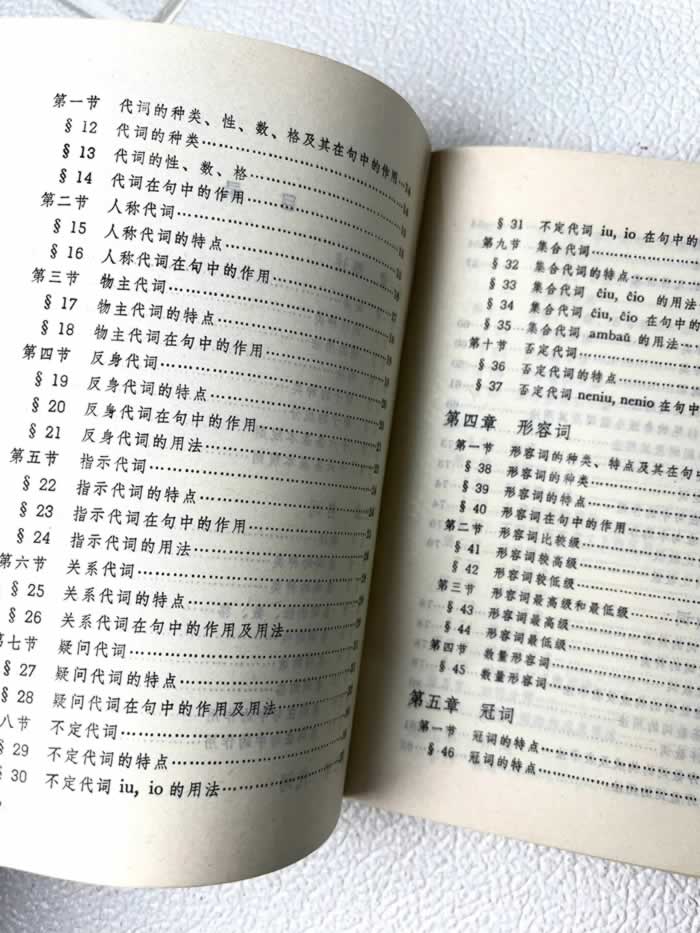 第一节 代词的种类、性、数、格及其在句中的作用
§ 12 代词的种类
§ 13 代词的性、数、格
§ 14 代词在句中的作用
第二节 人称代词
§ 15 人称代词的特点
§ 16 人称代词在句中的作用
第三节 物主代词
§ 17 物主代词的特点
§ 18 物主代词在句中的作用
第四节 反身代词
§ 19 反身代词的特点
§ 20 反身代词在句中的作用
§ 21 反身代词的用法
第五节 指示代词
§ 22 指示代词的特点
§ 23 指示代词在句中的作用
§ 24 指示代词的用法
第六节 关系代词
§ 25 关系代词的特点
§ 26 关系代词在句中的作用及用法
第七节 疑问代词
§ 27 疑问代词的特点
§ 28 疑问代词在句中的作用及用法
八节 不定代词
§ 29 不定代词的特点
§ 30 不定代词 iu, io 的用法
§ 31 不定代词 iu, io 在句中的
第九节 集合代词
§ 32 集合代词的特点
§ 33 集合代词 ĉiu, ĉio 的用法
§ 34 集合代词 ĉiu, ĉio 在句中的
§ 35 集合代词 ambaŭ 的用法
第十节 否定代词
§ 36 否定代词的特点
§ 37 否定代词 neniu, nenio 在句中
第四章 形容词
第一节 形容词的种类、特点及其在句中
§ 38 形容词的种类
§ 39 形容词的特点
§ 40 形容词在句中的作用
第二节 形容词比较级
§ 41 形容词较高级
§ 42 形容词较低级
第三节 形容词最高级和最低级
§ 43 形容词最高级
§ 44 形容词最低级
第四节 数量形容词
§ 45 数量形容词
第五章 冠词
第一节 冠词的特点
§ 46 冠词的特点